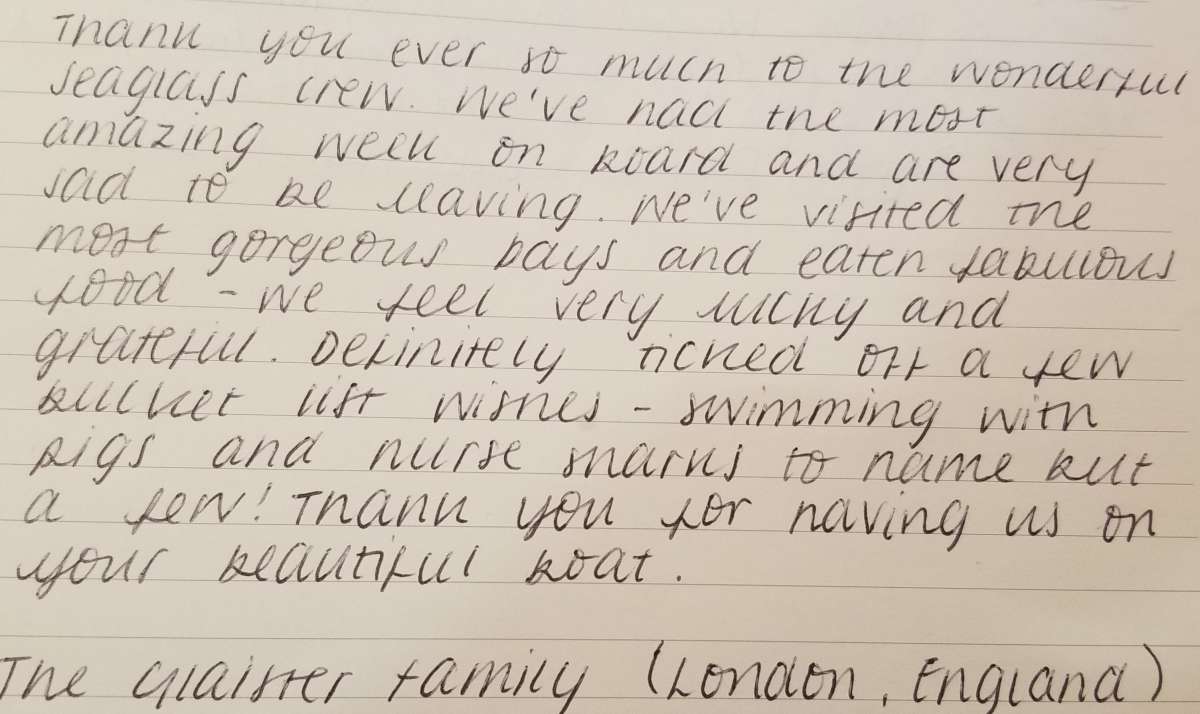 Thank you ever so much to the wonderful
Seaglass crew. We've had the most
amazing week on board and are very
sad to be leaving. We've visited the
most gorgeous bays and eaten fabulous
food - we feel very lucky and
grateful. Definitely ticked off a few
bucket list wishes - swimming with
pigs and nurse sharks to name but
a few! Thank you for having us on
your beautiful boat.
The Glaister family (London, England)